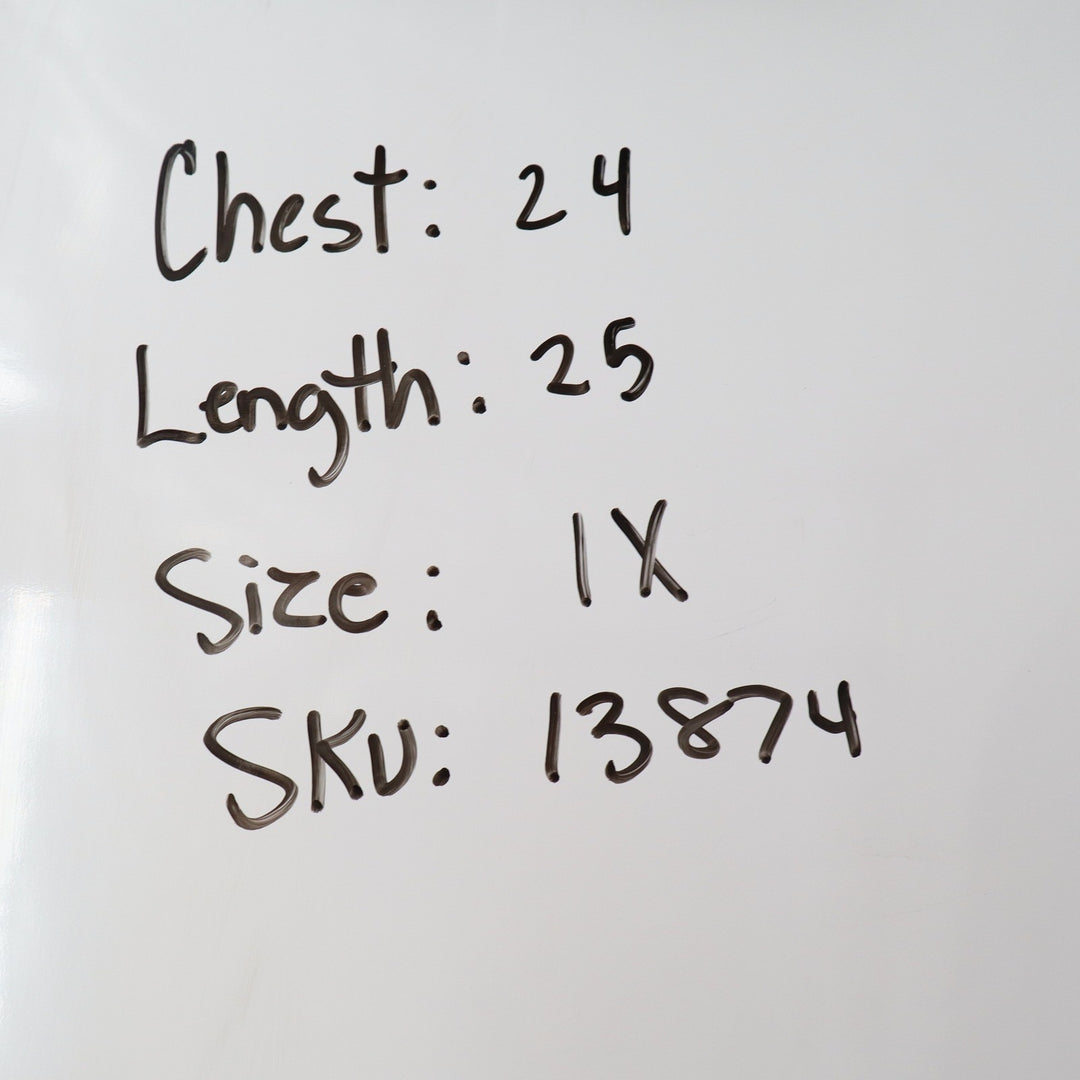 Chest: 24
Length: 25
Size: 1X
SKU: 13874